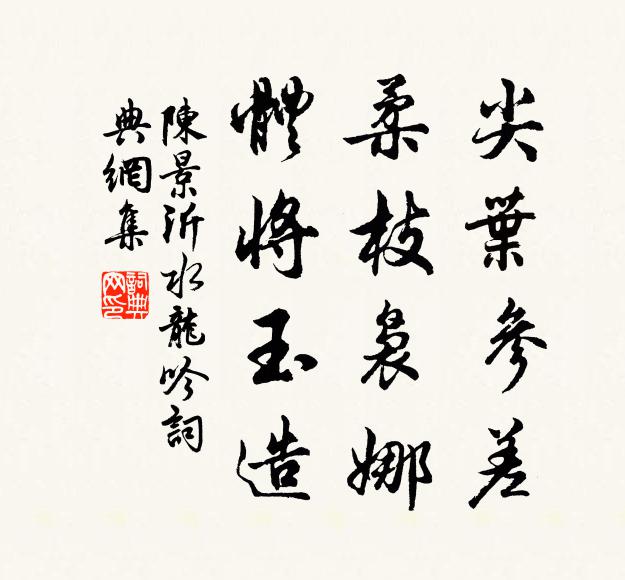 尖葉參差
柔枝裊娜
體將玉造
陳景沂水龍吟詞
典網集
詞典
网印